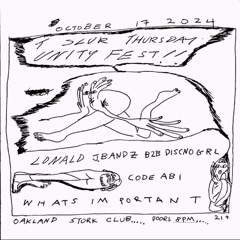 OCTOBER 17 2024
T SLUR THURSDAY
UNITY FEST!!
LDNALD JBANDZ B2B DISCNOGRL
CODE ABI
WHATS IMPORTANT
OAKLAND STORK CLUB..... DOORS 8PM..... 21+